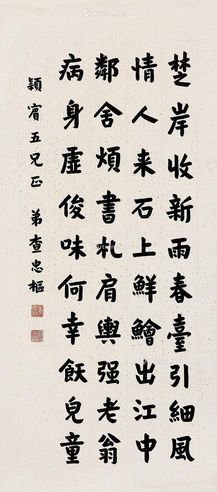 楚岸收新雨春臺引細風
情人来石上鮮鱠出江中
鄰舍煩書札肩輿强老翁
病身虛俊味何幸飫皃童
穎賓五兄正 弟查忠樞